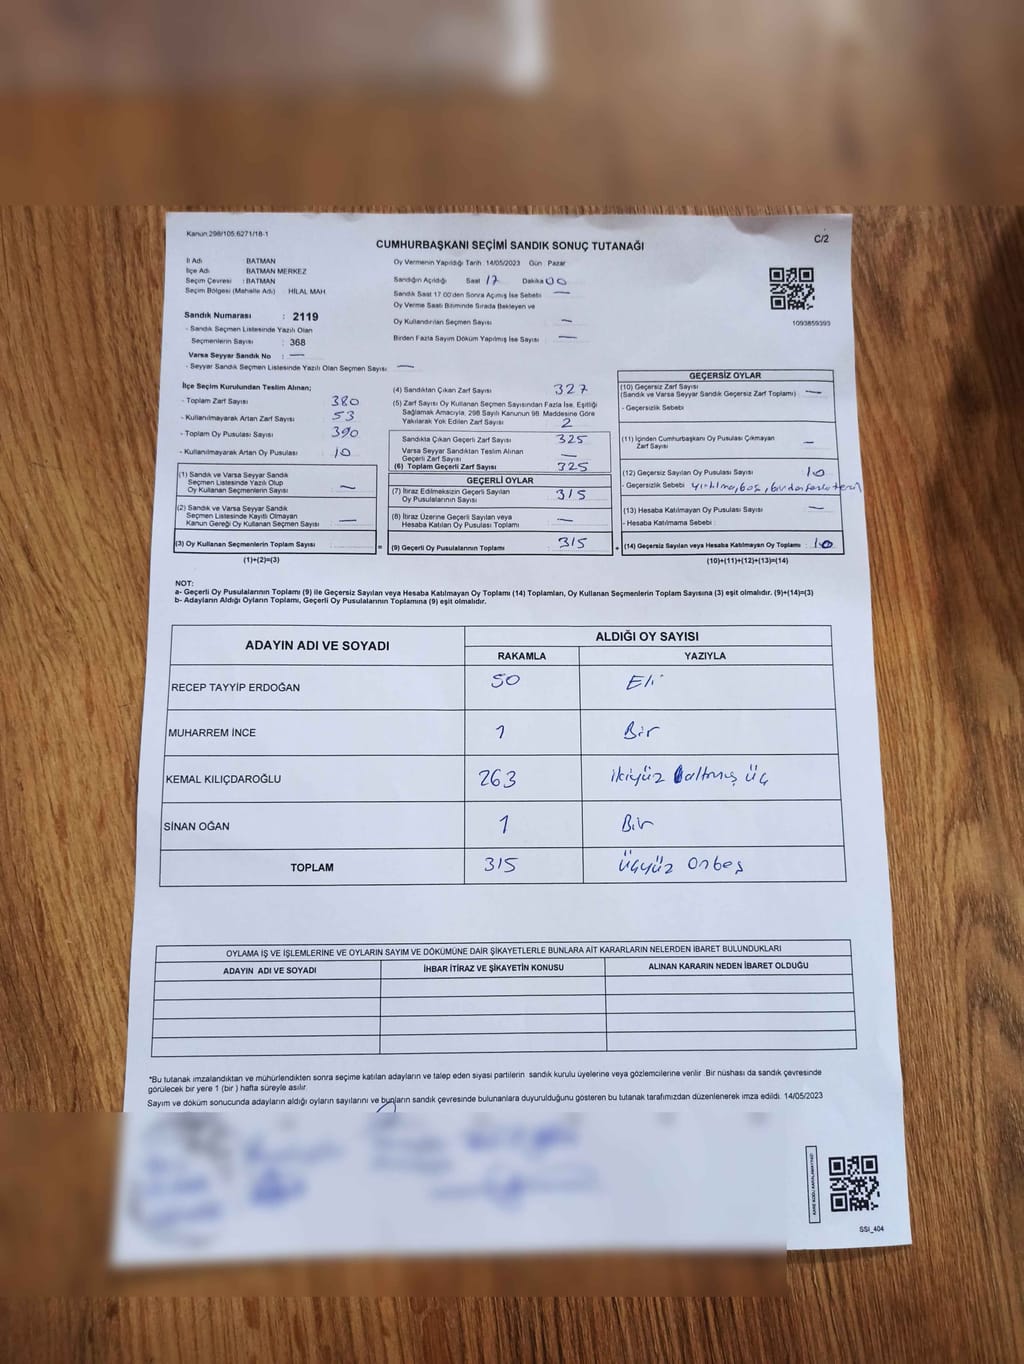 Kanun:298/105.6271/18-1
C/2
CUMHURBAŞKANI SEÇİMİ SANDIK SONUÇ TUTANAĞI
İl Adı BATMAN
İlçe Adı BATMAN MERKEZ
Seçim Çevresi : BATMAN
Seçim Bölgesi (Mahalle Adı) HİLAL MAH
Sandık Numarası : 2119
- Sandık Seçmen Listesinde Yazılı Olan
Seçmenlerin Sayısı : 368
Varsa Seyyar Sandık No : —
- Seyyar Sandık Seçmen Listesinde Yazılı Olan Seçmen Sayısı : —
Oy Vermenin Yapıldığı Tarih 14/05/2023 Gün Pazar
Sandığın Açıldığı Saat 17 Dakika 00
Sandık Saat 17.00'den Sonra Açımış İse Sebebi —
Oy Verme Saati Bitiminde Sırada Bekleyen ve
Oy Kullandırılan Seçmen Sayısı —
Birden Fazla Sayım Döküm Yapılmış İse Sayısı —
1093859393
İlçe Seçim Kurulundan Teslim Alınan;
- Toplam Zarf Sayısı 380
- Kullanılmayarak Artan Zarf Sayısı 53
- Toplam Oy Pusulası Sayısı 390
- Kullanılmayarak Artan Oy Pusulası 10
(1) Sandık ve Varsa Seyyar Sandık
Seçmen Listesinde Yazılı Olup
Oy Kullanan Seçmenlerin Sayısı —
(2) Sandık ve Varsa Seyyar Sandık
Seçmen Listesinde Kayıtlı Olmayan
Kanun Gereği Oy Kullanan Seçmen Sayısı —
(3) Oy Kullanan Seçmenlerin Toplam Sayısı
(1)+(2)=(3)
(4) Sandıktan Çıkan Zarf Sayısı 327
(5) Zarf Sayısı Oy Kullanan Seçmen Sayısından Fazla İse, Eşitliği
Sağlamak Amacıyla, 298 Sayılı Kanunun 98. Maddesine Göre
Yakılarak Yok Edilen Zarf Sayısı 2
Sandıkta Çıkan Geçerli Zarf Sayısı 325
Varsa Seyyar Sandıktan Teslim Alınan
Geçerli Zarf Sayısı —
(6) Toplam Geçerli Zarf Sayısı 325
GEÇERLİ OYLAR
(7) İtiraz Edilmeksizin Geçerli Sayılan
Oy Pusulalarının Sayısı 315
(8) İtiraz Üzerine Geçerli Sayılan veya
Hesaba Katılan Oy Pusulası Toplamı —
= (9) Geçerli Oy Pusulalarının Toplamı 315
GEÇERSİZ OYLAR
(10) Geçersiz Zarf Sayısı
(Sandık ve Varsa Seyyar Sandık Geçersiz Zarf Toplamı) —
- Geçersizlik Sebebi
(11) İçinden Cumhurbaşkanı Oy Pusulası Çıkmayan
Zarf Sayısı —
(12) Geçersiz Sayılan Oy Pusulası Sayısı 10
- Geçersizlik Sebebi yırtılma, boş, birden fazla
(13) Hesaba Katılmayan Oy Pusulası Sayısı —
- Hesaba Katılmama Sebebi :
+ (14) Geçersiz Sayılan veya Hesaba Katılmayan Oy Toplamı : 10
(10)+(11)+(12)+(13)=(14)
NOT:
a- Geçerli Oy Pusulalarının Toplamı (9) ile Geçersiz Sayılan veya Hesaba Katılmayan Oy Toplamı (14) Toplamları, Oy Kullanan Seçmenlerin Toplam Sayısına (3) eşit olmalıdır. (9)+(14)=(3)
b- Adayların Aldığı Oyların Toplamı, Geçerli Oy Pusulalarının Toplamına (9) eşit olmalıdır.
ADAYIN ADI VE SOYADI ALDIĞI OY SAYISI
RAKAMLA YAZIYLA
RECEP TAYYİP ERDOĞAN 50 Elli
MUHARREM İNCE 1 Bir
KEMAL KILIÇDAROĞLU 263 ikiyüz altmış üç
SİNAN OĞAN 1 Bir
TOPLAM 315 üçyüz Onbeş
OYLAMA İŞ VE İŞLEMLERİNE VE OYLARIN SAYIM VE DÖKÜMÜNE DAİR ŞİKAYETLERLE BUNLARA AİT KARARLARIN NELERDEN İBARET BULUNDUKLARI
ADAYIN ADI VE SOYADI İHBAR İTİRAZ VE ŞİKAYETİN KONUSU ALINAN KARARIN NEDEN İBARET OLDUĞU
*Bu tutanak imzalandıktan ve mühürlendikten sonra seçime katılan adayların ve talep eden siyasi partilerin sandık kurulu üyelerine veya gözlemcilerine verilir .Bir nüshası da sandık çevresinde
görülecek bir yere 1 (bir ) hafta süreyle asılır.
Sayım ve döküm sonucunda adayların aldığı oyların sayılarını ve bunların sandık çevresinde bulunanlara duyurulduğunu gösteren bu tutanak tarafımızdan düzenlenerek imza edildi. 14/05/2023
SSI_404